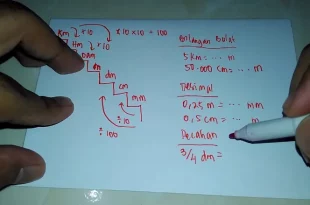 Km ×10 ×10 × 10 = 100
Hm
Dam
m
dm
cm
mm
÷ 10
÷ 100
Bilangan Bulat
5 km = ... m
50.000 cm = ... m
Desimal
0,25 m = ... mm
0,5 cm = ... m
Pecahan
3/4 dm =